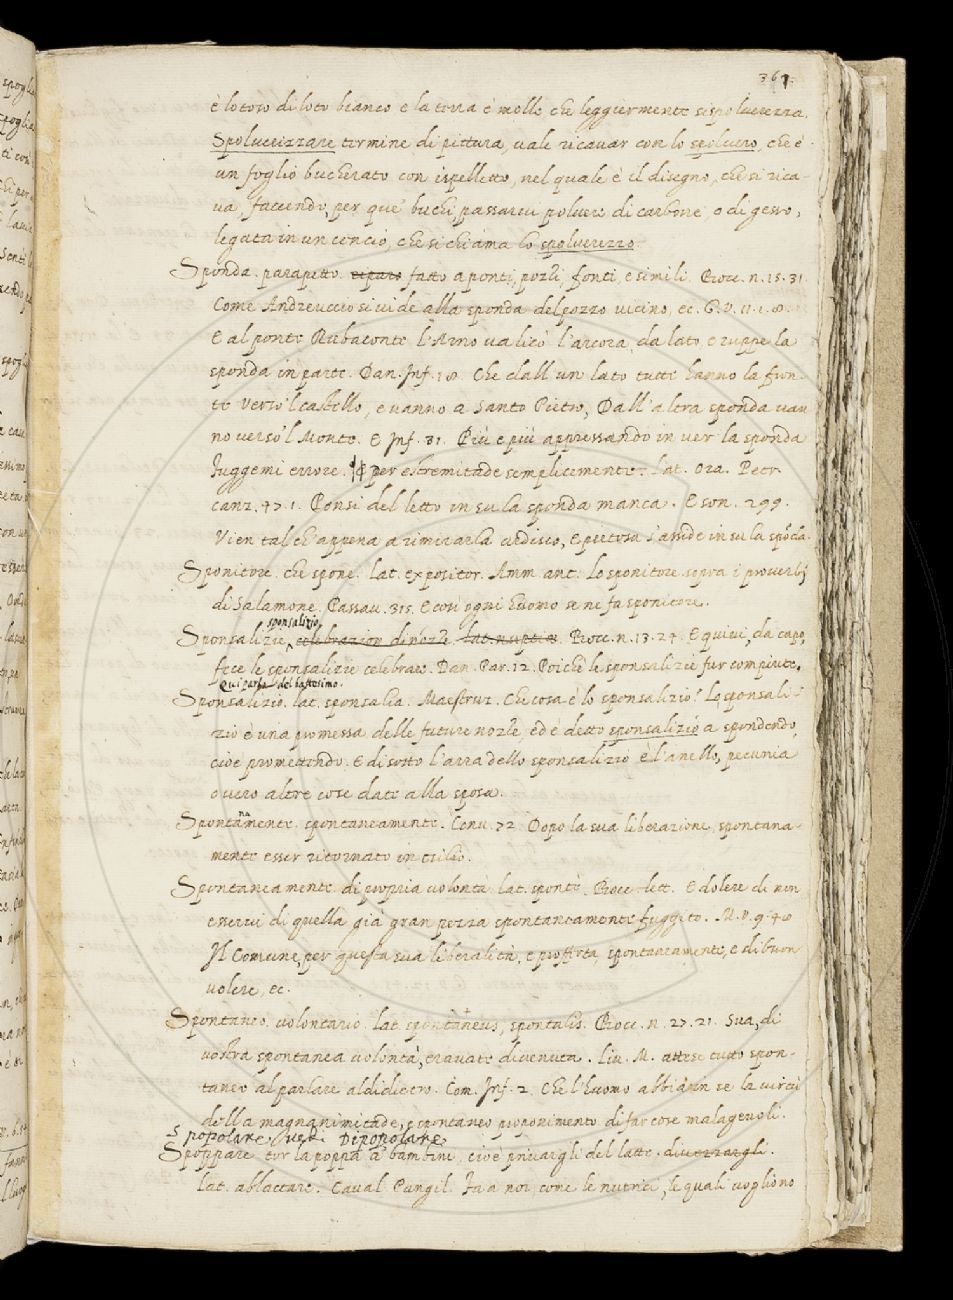 367.
è lotoso di loto bianco e la terra è molle che leggiermente si spoluerezza.
Spoluerizzare termine di pittura, uale ricauar con lo spoluero, che è
un foglio bucherato con ispelletto, nel quale è il disegno, che si rica-
ua facendo, per que' buchi passarui poluere di carbone, o di gesso,
legata in un cencio, che si chiama lo spoluerezzo.
Sponda. parapetto riparo fatto a ponti, pozzi, fonti, e simili. Bocc. n. 15. 31.
Come Andreuccio si uide alla sponda del pozzo uicino, ec. G. V. 11. 1. 8.
E al ponte Rubaconte l'Arno ualicò l'arcora da lato e ruppe la
sponda in parte. Dan. Inf. 18. Che dall'un lato tutti hanno la fron-
te verso 'l castello, e uanno a Santo Pietro, Dall'altra sponda uan
no uerso 'l Monte. E Inf. 31. Più e più appressando in uer la sponda
Fuggemi errore. ¶ per estremitade semplicemente. lat. ora. Petr.
canz. 47. 1. Ponsi del letto in su la sponda manca. E son. 299.
Vien tal ch'appena a rimirarla ardisco, E pietosa s'asside in su la spoda.
Sponitore. che spone. lat. expositor. Amm. ant. Lo sponitore sopra i prouerbj
di Salamone. Passau. 315. E così ogni huomo se ne fa sponitore.
sponsalizio,
Sponsalizie, celebrazion di nozze. lat. nuptiæ. Bocc. n. 13. 24. E quiui, da capo,
fece le sponsalizie celebrare. Dan. Par. 12. Poichè le sponsalizie fur compiute.
Qui parla del battesimo.
Sponsalizio. lat. sponsalia. Maestruz. Che cosa è lo sponsalizio? Lo sponsali-
zio è una promessa delle future nozze, ed è detto sponsalizio a spondendo,
cioè promettendo. E di sotto l'arra dello sponsalizio è l'anello, pecunia
ouero altre cose date alla sposa.
na
Spontamente. spontaneamente. Conu. 72. Dopo la sua liberazione, spontana-
mente esser ritornato in esilio.
Spontaneamente. di propria uolontà. lat. sponte. Bocc. lett. E dolere di non
esserui di quella già gran pezza spontaneamente fuggito. M. V. 9. 48.
Il Comune, per questa sua liberalità, e profferta, spontaneamente, e di buon
uolere, ec.
Spontaneo. uolontario. lat. spontaneus, spontalis. Bocc. n. 27. 21. Sua, di
uostra spontanea uolontà, erauate diuenuta. Liu. M. attese tutto spon-
taneo al parlare al didietro. Com. Inf. 2. Che l'huomo abbia in se la uirtù
della magnanimitade, e spontaneo proponimento di far cose malageuoli.
Spopolare vedi Dipopolare
Spoppare tor la poppa a' bambini, cioè priuargli del latte. diuezzargli.
lat. ablactare. Caual. Pungil. Fa a noi, come le nutrici, le quali uogliono